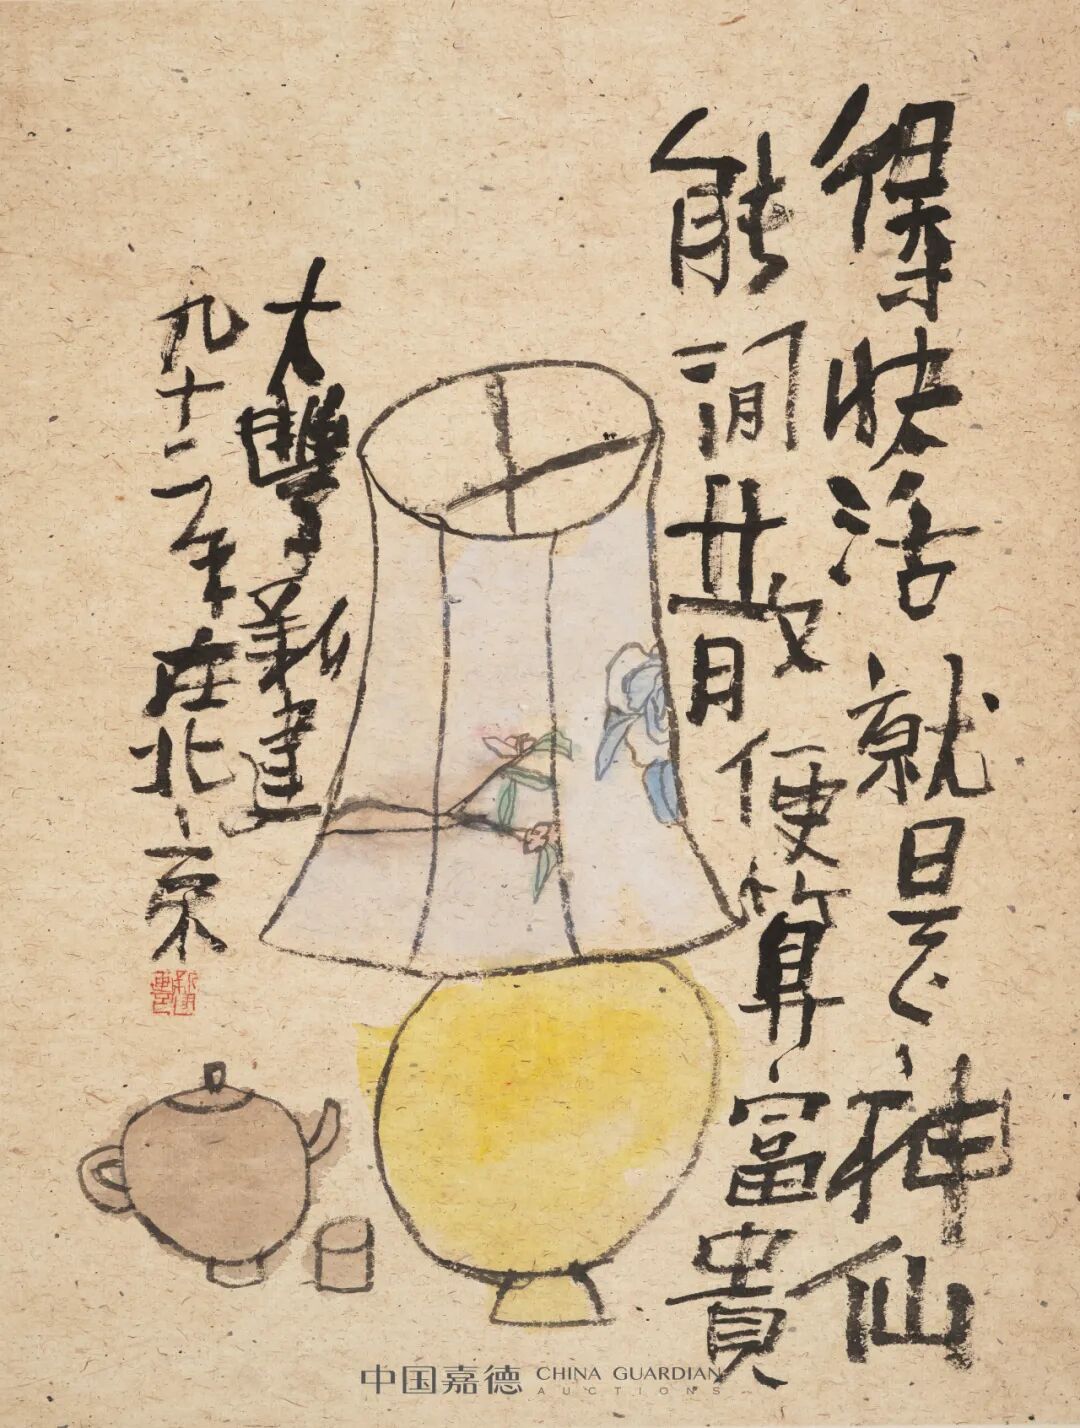 得快活就是神仙
能閒散便算富貴
大豐新建
九十二年在北京
中国嘉德 CHINA GUARDIAN
AUCTIONS